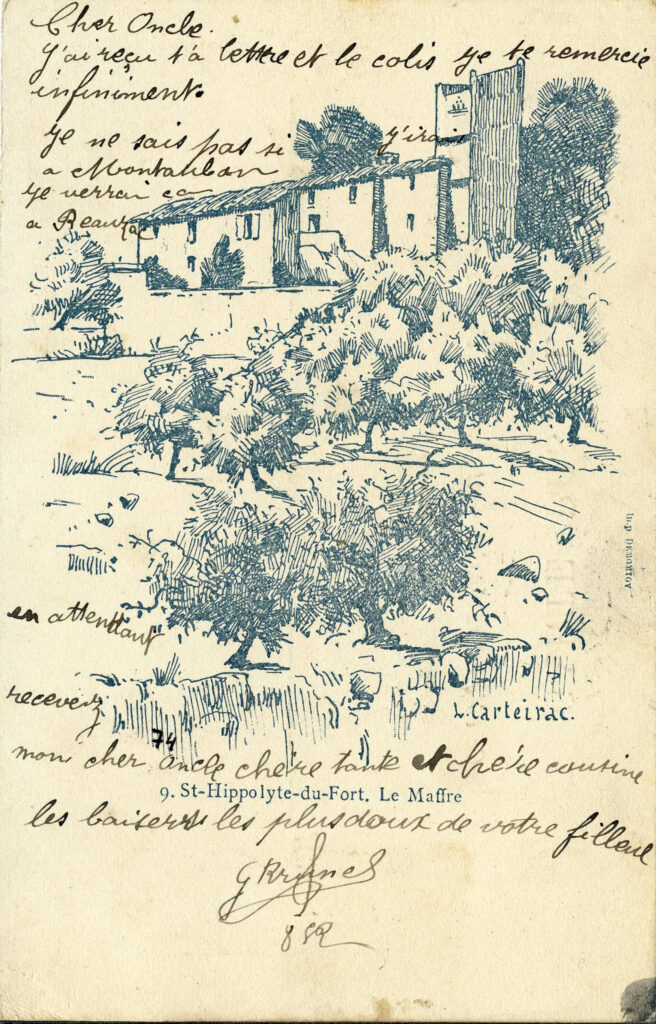 Cher Oncle.
j'ai reçu ta lettre et le colis je te remercie
infiniment.
je ne sais pas si j'irais
a Montauban
je verrai ca
a Reauzac
en attendant
recevez
74
mon cher Oncle chère tante et chère cousine
9. St-Hippolyte-du-Fort. Le Maffre
les baisers les plus doux de votre filleul
L. Carteirac.
Imp. DEMONTOY